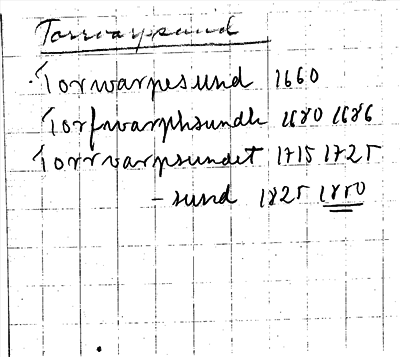 Torrvarpsund
Torwarpesund 1660
Torfwarphsundh 1680 1686
Torrvarpsundet 1715 1725
- sund 1825 1850